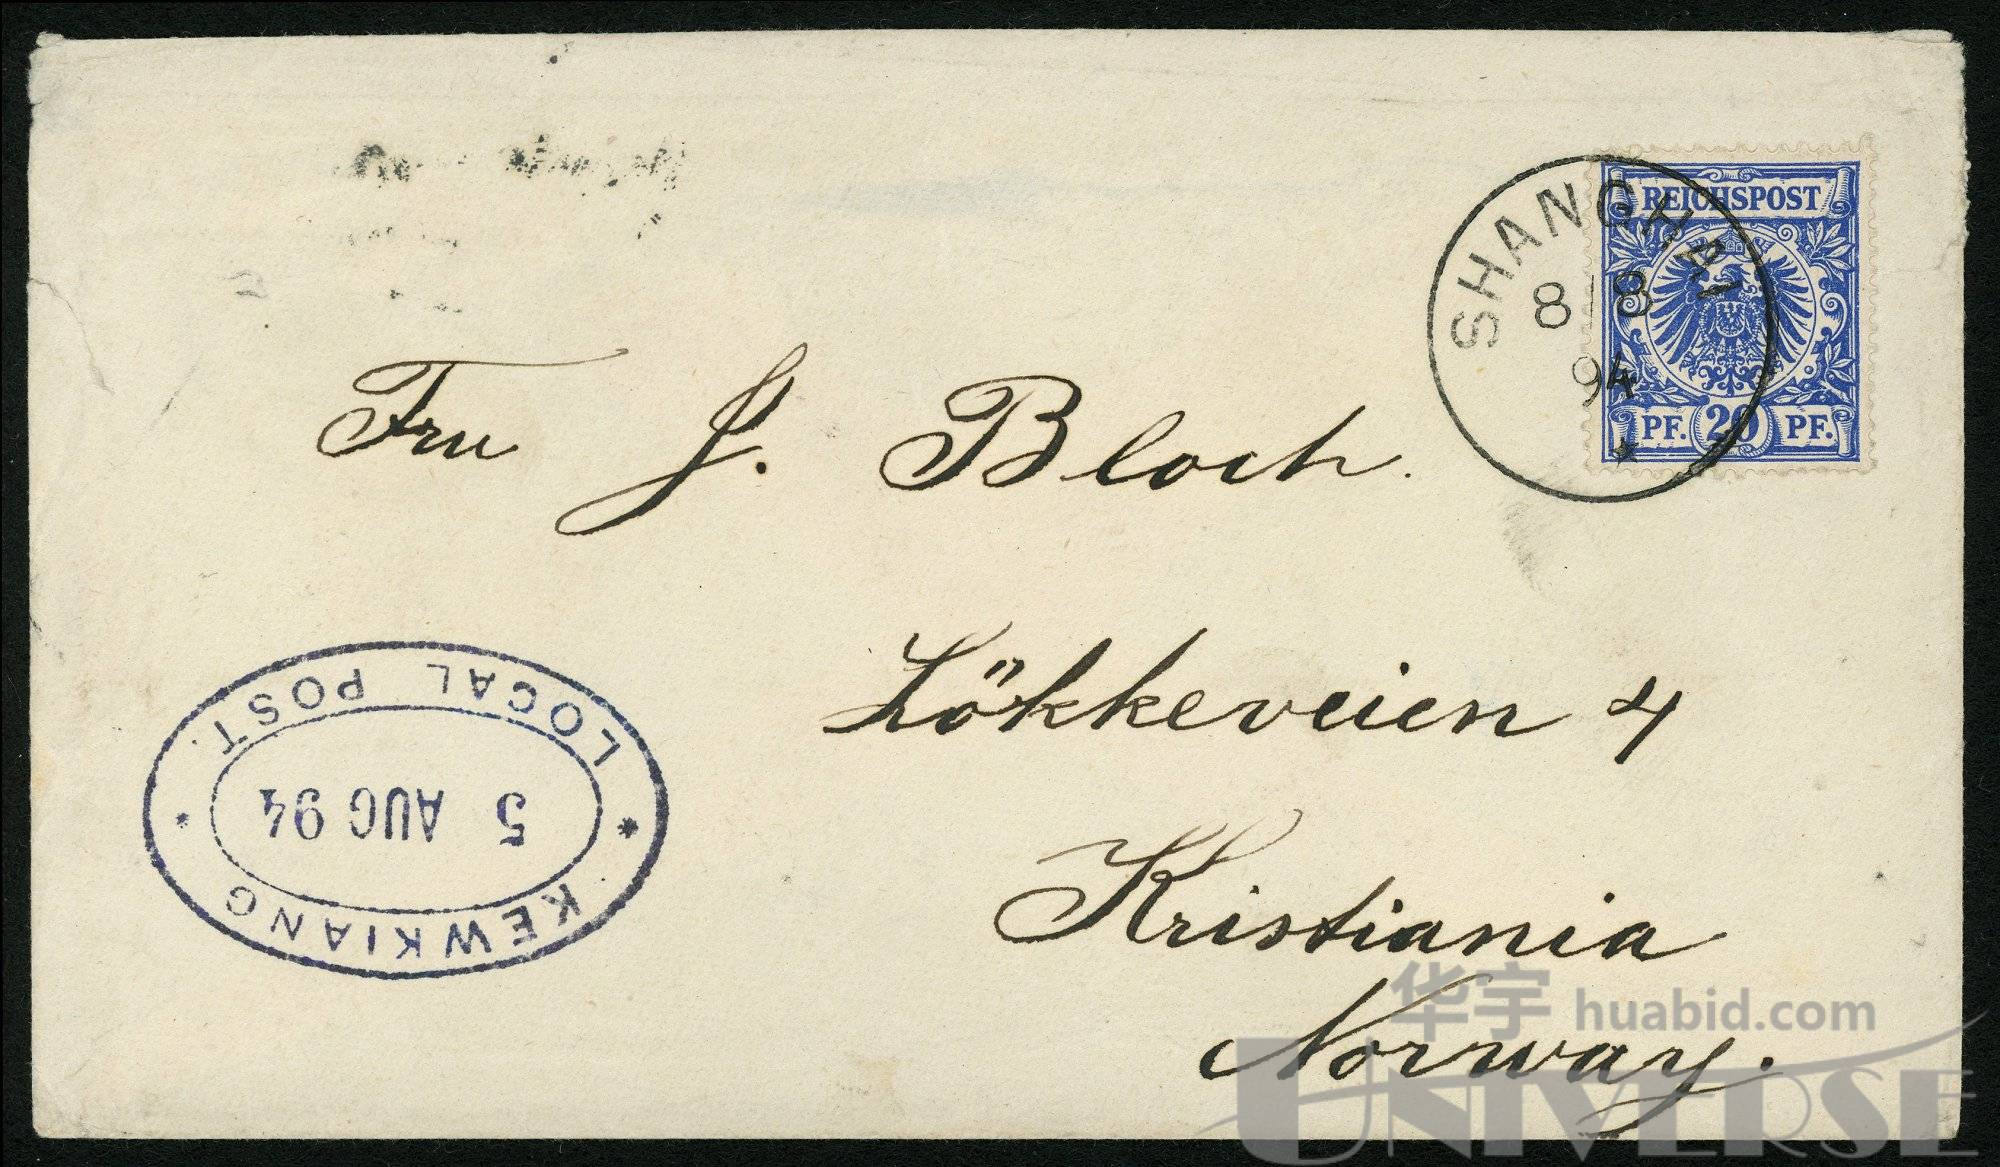 REICHSPOST
PF. 20 PF.
SHANGHAI
8/8
94
*
Fru J. Bloch.
Lökkeveien 4
Kristiania
Norway.
KEWKIANG
* 5 AUG 94 *
LOCAL POST.
华宇 huabid.com
UNIVERSE